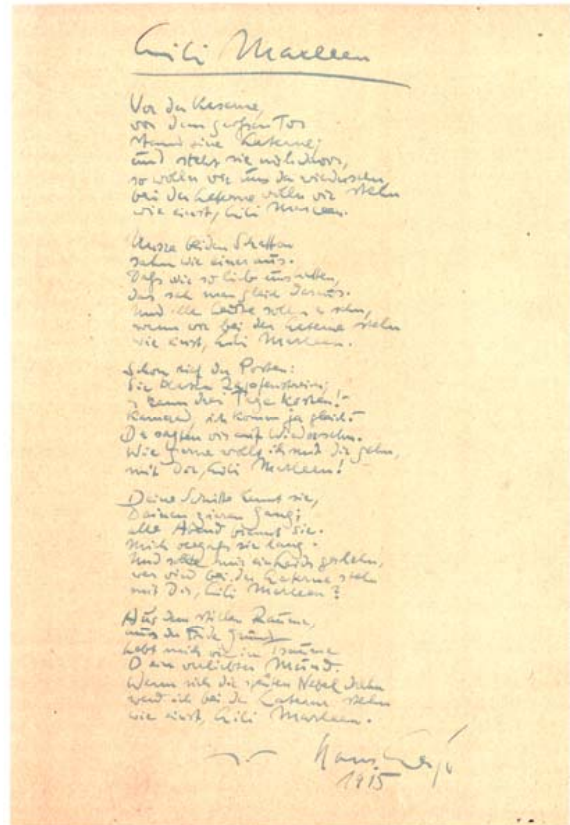 Lili Marleen
Vor der Kaserne,
vor dem großen Tor
stand eine Laterne;
und steht sie noch davor,
so wolln wir uns da wiedersehn,
bei der Laterne wolln wir stehn
wie einst, Lili Marleen.
Unsre beiden Schatten
sahn wie einer aus.
Daß wir so lieb uns hatten,
das sah man gleich daraus.
Und alle Leute solln es sehn,
wenn wir bei der Laterne stehn
wie einst, Lili Marleen.
Schon rief der Posten:
Sie blasen Zapfenstreich;
s kann drei Tage kosten!
Kamerad, ich komm ja gleich.
Da sagten wir auf Wiedersehn.
Wie gerne wollt ich mit dir gehn,
mit Dir, Lili Marleen!
Deine Schritte kennt sie,
Deinen zieren Gang;
alle Abend brennt sie.
mich vergaß sie lang.
Und sollte mir ein Leids geschehn,
wer wird bei der Laterne stehn
mit Dir, Lili Marleen?
Aus dem stillen Raume,
aus der Erde Grund
hebt mich wie im Traume
Dein verliebter Mund.
Wenn sich die späten Nebel drehn
werd ich bei der Laterne stehn
wie einst, Lili Marleen.
Hans Leip
1915